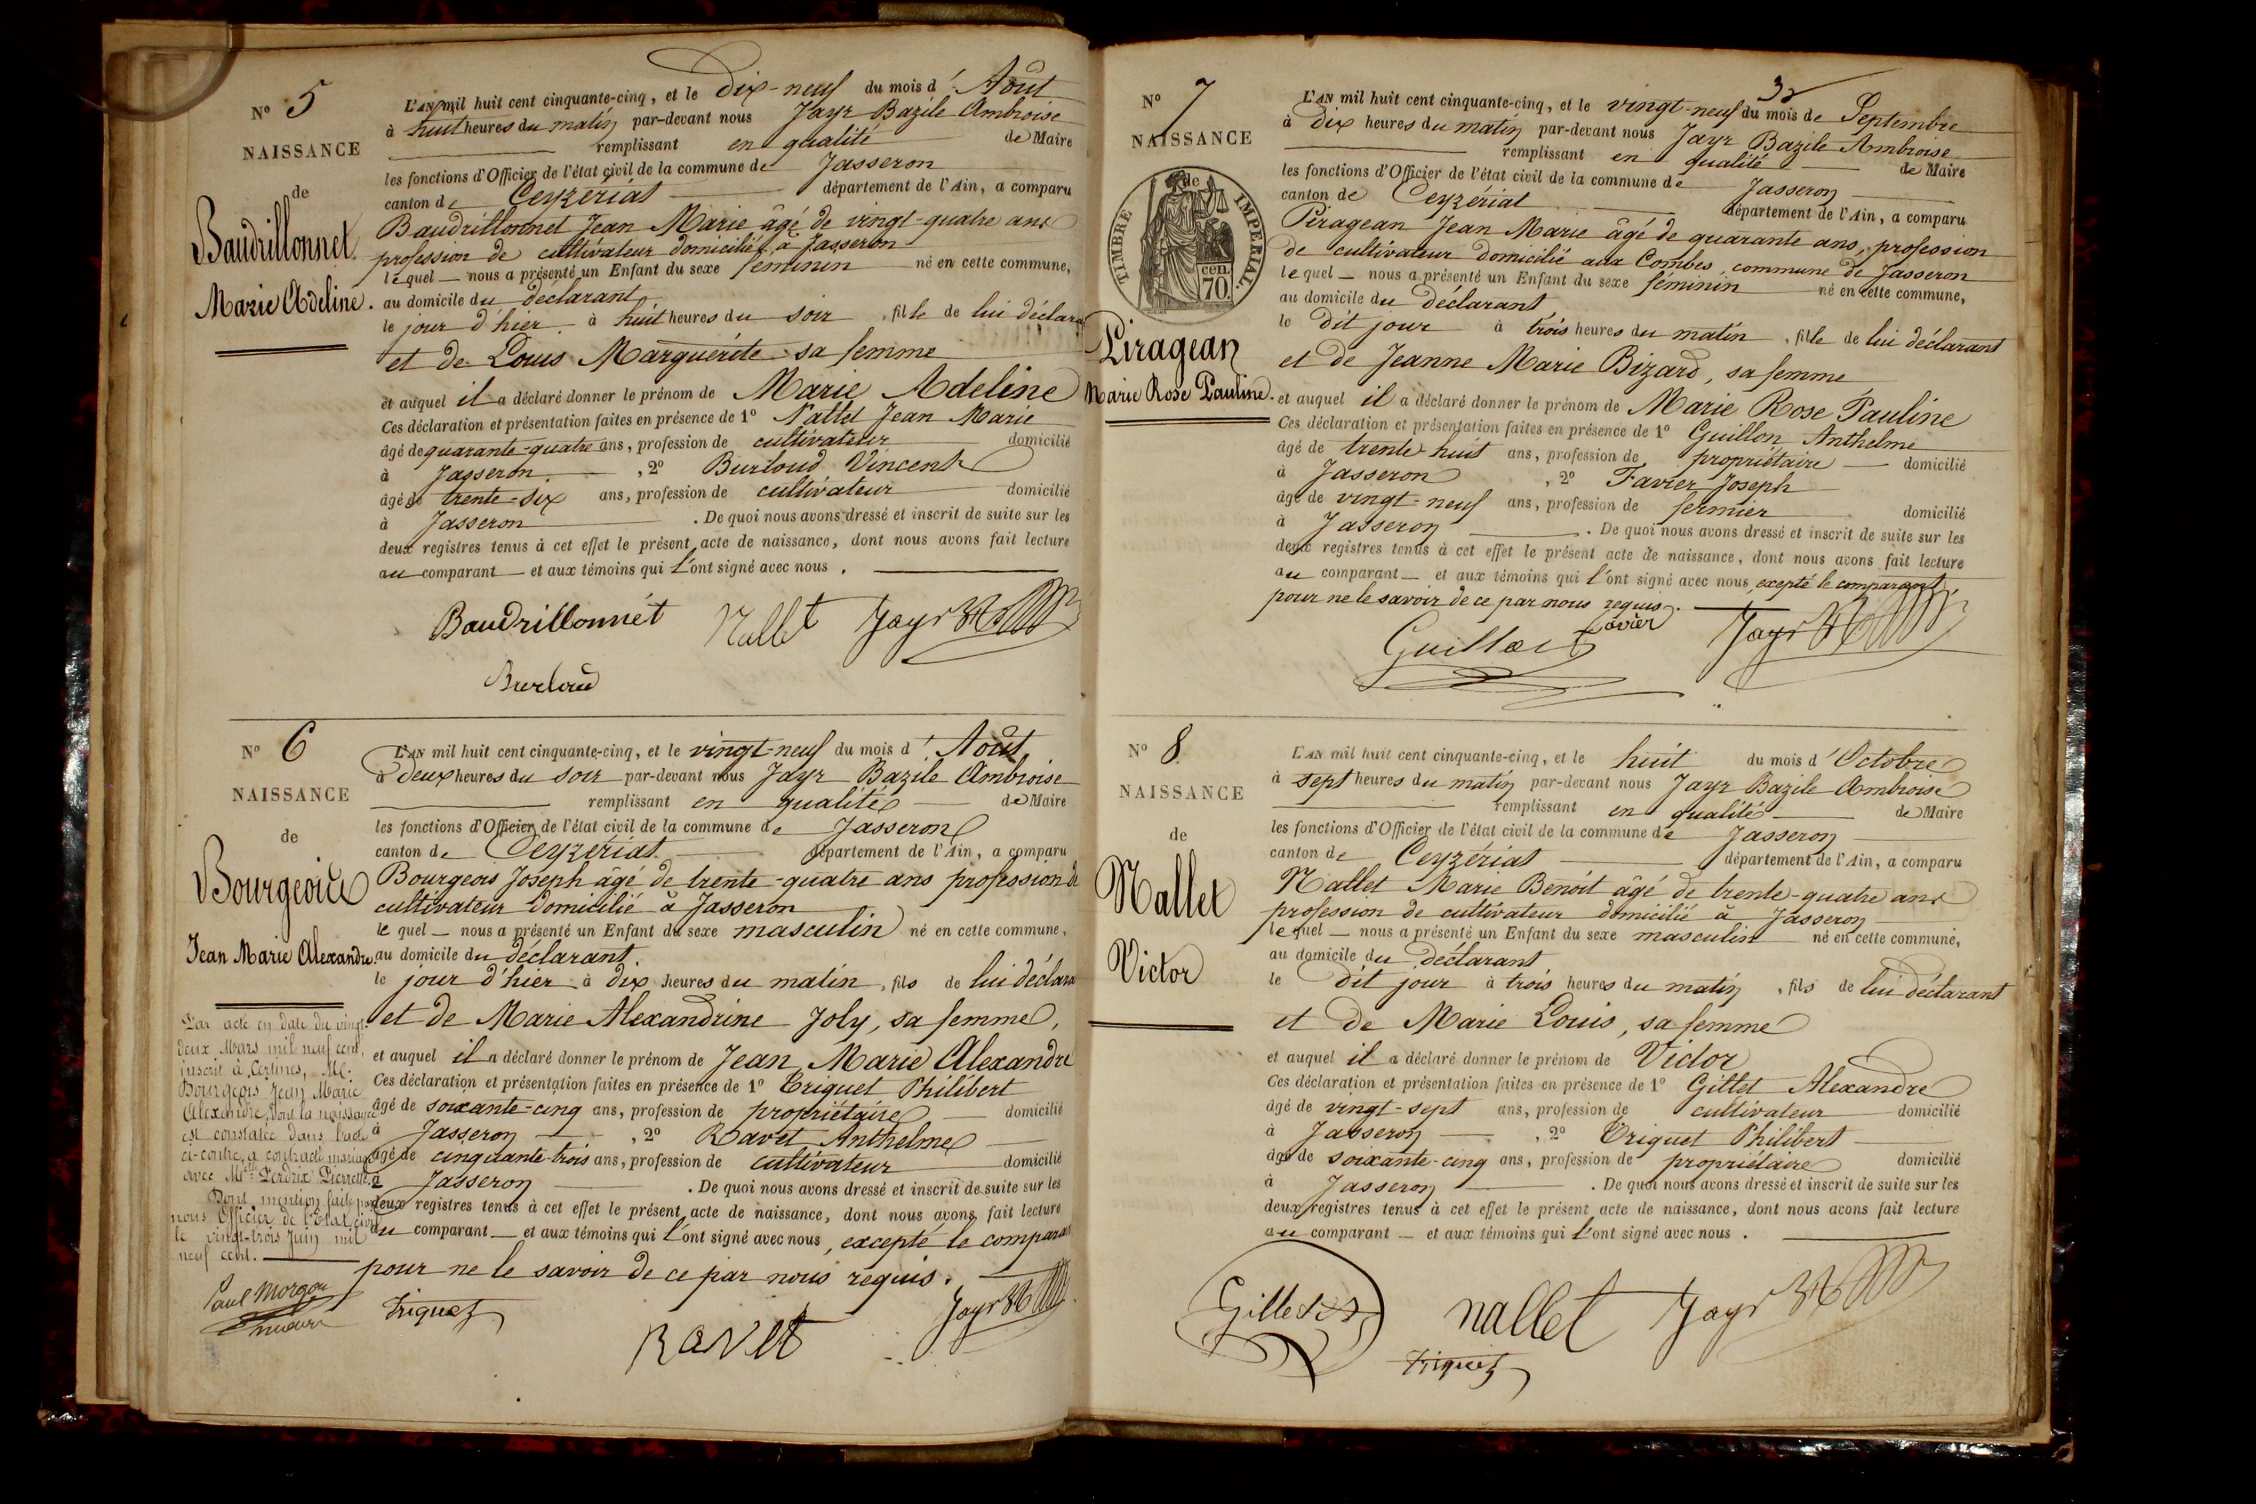 N° 5
NAISSANCE
de
Baudrillonnet
Marie Adeline.
L'AN mil huit cent cinquante-cinq, et le dix-neuf du mois d'Août
à huit heures du matin par-devant nous Jayr Bazile Ambroise
remplissant en qualité de Maire
les fonctions d'Officier de l'état civil de la commune de Jasseron
canton de Ceyzériat département de l'Ain, a comparu
Baudrillonnet Jean Marie âgé de vingt-quatre ans
profession de cultivateur domicilié à Jasseron
lequel nous a présenté un Enfant du sexe féminin né en cette commune,
au domicile du déclarant
le jour d'hier à huit heures du soir, fille de lui déclara
et de Louis Marguerite sa femme
et auquel il a déclaré donner le prénom de Marie Adeline
Ces déclaration et présentation faites en présence de 1° Nallet Jean Marie
âgé de quarante-quatre ans, profession de cultivateur domicilié
à Jasseron, 2° Burloud Vincent
âgé de trente-six ans, profession de cultivateur domicilié
à Jasseron. De quoi nous avons dressé et inscrit de suite sur les
deux registres tenus à cet effet le présent acte de naissance, dont nous avons fait lecture
au comparant et aux témoins qui l'ont signé avec nous.
Baudrillonnét Nallet Jayr
Burloud
N° 6
NAISSANCE
de
Bourgeois
Jean Marie Alexandre.
L'AN mil huit cent cinquante-cinq, et le vingt-neuf du mois d'Août
à deux heures du soir par-devant nous Jayr Bazile Ambroise
remplissant en qualité de Maire
les fonctions d'Officier de l'état civil de la commune de Jasseron
canton de Ceyzériat département de l'Ain, a comparu
Bourgeois Joseph âgé de trente-quatre ans profession de
cultivateur domicilié à Jasseron
lequel nous a présenté un Enfant du sexe masculin né en cette commune,
au domicile du déclarant.
le jour d'hier à dix heures du matin, fils de lui déclara
et de Marie Alexandrine Joly, sa femme,
et auquel il a déclaré donner le prénom de Jean Marie Alexandre
Ces déclaration et présentation faites en présence de 1° Triquet Philibert
âgé de soixante-cinq ans, profession de propriétaire domicilié
à Jasseron, 2° Ravet Anthelme
âgé de cinquante-trois ans, profession de cultivateur domicilié
à Jasseron. De quoi nous avons dressé et inscrit de suite sur les
deux registres tenus à cet effet le présent acte de naissance, dont nous avons fait lecture
au comparant et aux témoins qui l'ont signé avec nous, excepté le comparant
pour ne le savoir de ce par nous requis.
Par acte en date du vingt-
deux Mars mil neuf cent,
inscrit à Certines, Mr.
Bourgeois Jean Marie
Alexandre, dont la naissance
est constatée dans l'acte
ci-contre, a contracté mariage
avec Melle Perdrix Pierrette.
Dont mention faite par
nous Officier de l'Etat civil
le vingt-trois Juin mil
neuf cent.
Paul Morgon
Triquet Ravet Jayr
N° 7
NAISSANCE
de
TIMBRE IMPERIAL.
70 cen.
Piragean
Marie Rose Pauline.
32
L'AN mil huit cent cinquante-cinq, et le vingt-neuf du mois de Septembre
à dix heures du matin par-devant nous Jayr Bazile Ambroise
remplissant en qualité de Maire
les fonctions d'Officier de l'état civil de la commune de Jasseron
canton de Ceyzériat département de l'Ain, a comparu
Piragean Jean Marie âgé de quarante ans, profession
de cultivateur domicilié aux Combes, commune de Jasseron
lequel nous a présenté un Enfant du sexe féminin né en cette commune,
au domicile du déclarant
le dit jour à trois heures du matin, fille de lui déclarant
et de Jeanne Marie Bizard, sa femme
et auquel il a déclaré donner le prénom de Marie Rose Pauline
Ces déclaration et présentation faites en présence de 1° Guillon Anthelme
âgé de trente huit ans, profession de propriétaire domicilié
à Jasseron, 2° Favier Joseph
âgé de vingt-neuf ans, profession de fermier domicilié
à Jasseron. De quoi nous avons dressé et inscrit de suite sur les
deux registres tenus à cet effet le présent acte de naissance, dont nous avons fait lecture
au comparant et aux témoins qui l'ont signé avec nous, excepté le comparant,
pour ne le savoir de ce par nous requis.
Favier Jayr
N° 8
NAISSANCE
de
Nallet
Victor
L'AN mil huit cent cinquante-cinq, et le huit du mois d'Octobre
à sept heures du matin par-devant nous Jayr Bazile Ambroise
remplissant en qualité de Maire
les fonctions d'Officier de l'état civil de la commune de Jasseron
canton de Ceyzériat département de l'Ain, a comparu
Nallet Marie Benoît âgé de trente-quatre ans
profession de cultivateur domicilié à Jasseron
lequel nous a présenté un Enfant du sexe masculin né en cette commune,
au domicile du déclarant
le dit jour à trois heures du matin, fils de lui déclarant
et de Marie Louis, sa femme
et auquel il a déclaré donner le prénom de Victor
Ces déclaration et présentation faites en présence de 1° Gillet Alexandre
âgé de vingt-sept ans, profession de cultivateur domicilié
à Jasseron, 2° Triquet Philibert
âgé de soixante-cinq ans, profession de propriétaire domicilié
à Jasseron. De quoi nous avons dressé et inscrit de suite sur les
deux registres tenus à cet effet le présent acte de naissance, dont nous avons fait lecture
au comparant et aux témoins qui l'ont signé avec nous.
nallet Jayr
Triquet